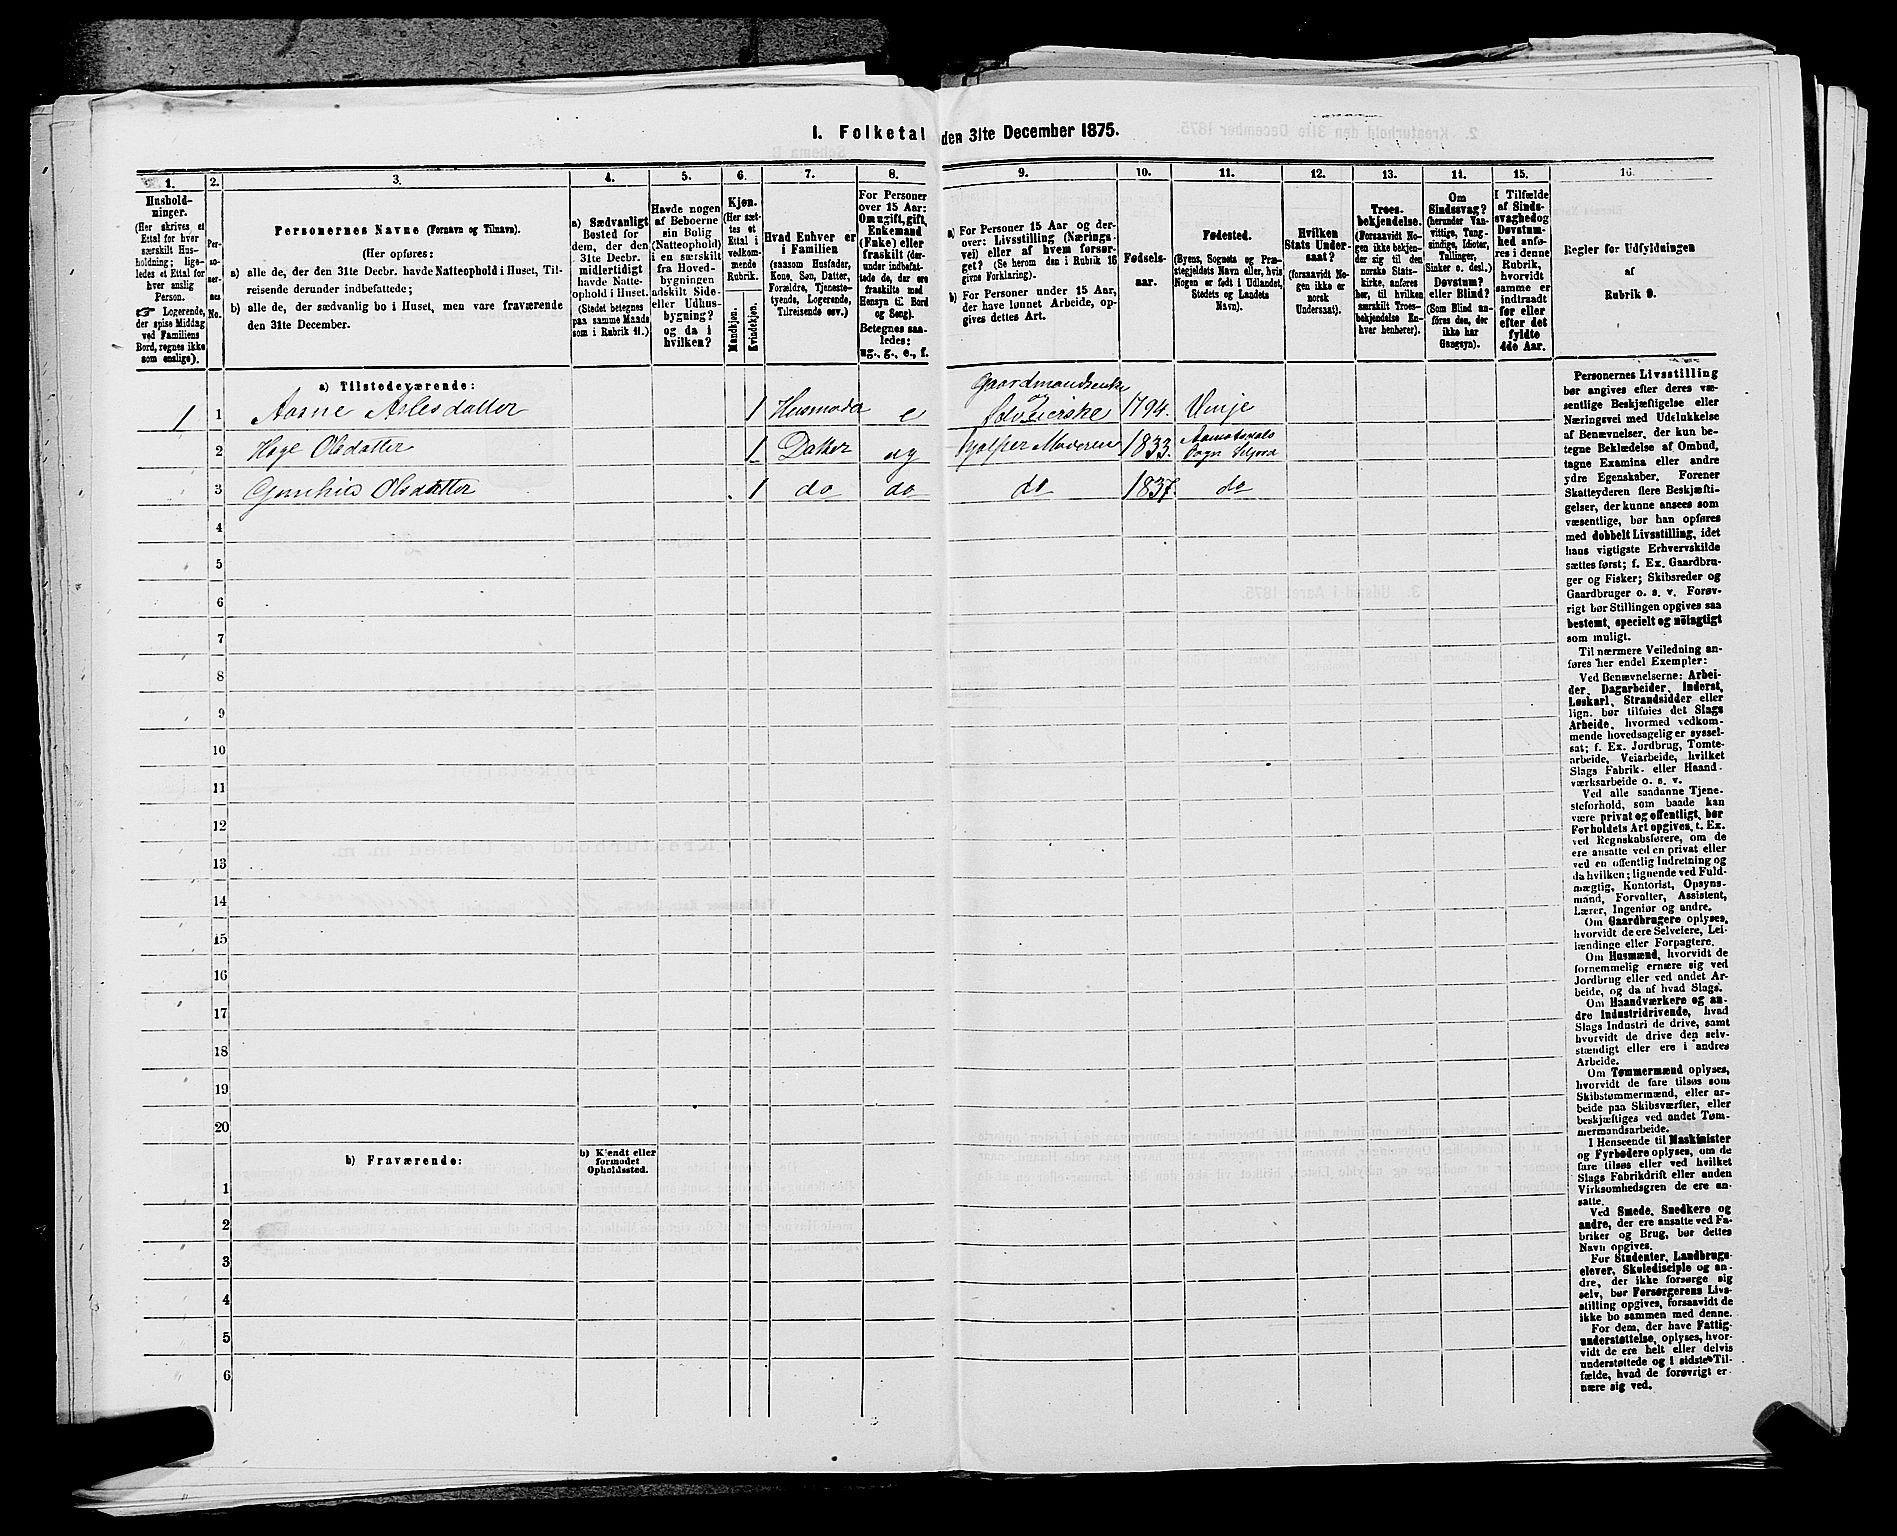 I. Folketal den 31te December 1875.
1.
Hushold-
ninger.
(Her skrives et
Ettal for hver
særskilt Hus-
holdning; lige-
ledes et Ettal for
hver enslig
Person.
Logerende,
der spise Middag
ved Familiens
Bord, regnes ikke
som enslige).
2.
Per-
so-
ner-
nes
No.
3.
Personernes Navne (Fornavn og Tilnavn).
(Her opføres:
a) alle de, der den 31te Decbr. havde Natteophold i Huset, Til-
reisende derunder indbefattede;
b) alle de, der sædvanlig bo i Huset, men vare fraværende
den 31te December.
4.
a) Sædvanligt
Bosted for
dem, der den
31te Decbr.
midlertidigt
havde Natte-
ophold i Huset.
(Stedet betegnes
paa samme Maade
som i Rubrik 11.)
5.
Havde nogen
af Beboerne
sin Bolig
(Natteophold)
i en særskilt
fra Hoved-
bygningen
adskilt Side-
eller Udhus-
bygning?
og da i
hvilken?
6.
Kjøn.
(Her sæt-
tes et
Ettal i
vedkom-
mende
Rubrik.
Mandkjøn.
Kvindekjøn.
7.
Hvad Enhver er
i Familien
(saasom Husfader,
Kone, Søn, Datter,
Forældre, Tjeneste-
tyende, Logerende,
Tilreisende osv.)
8.
For Personer
over 15 Aar:
Om ugift, gift,
Enkemand
(Enke) eller
fraskilt (der-
under indbefat-
tede de, der ere
fraskilte med
Hensyn til Bord
og Seng).
Betegnes saa-
ledes:
ug., g., e., f.
9.
a) For Personer 15 Aar og der-
over: Livsstilling (Nærings-
vei) eller af hvem forsør-
get? (Se herom den i Rubrik 16
givne Forklaring).
b) For Personer under 15 Aar,
der have lønnet Arbeide, op-
gives dettes Art.
10.
Fødsels-
aar.
11.
Fødested.
(Byens, Sognets og Præ-
stegjeldets Navn eller, hvis
Nogen er født i Udlandet,
Stedets og Landets
Navn).
12.
Hvilken
Stats Under-
saat?
(forsaavidt No-
gen ikke er
norsk
Undersaat).
13.
Troes-
bekjendelse.
(Forsaavidt No-
gen ikke bekjen-
der sig til den
norske Stats-
kirke, anføres
her, til hvilken
særskilt Troes-
bekjendelse En-
hver henhører).
14.
Om
Sindssvag?
(herunder Van-
vittige, Tung-
sindige, Idioter,
Tullinger,
Sinker o. desl.)
Døvstum?
eller Blind?
(Som Blind an-
føres den, der
ikke har
Gangsyn).
15.
I Tilfælde
af Sinds-
svaghed og
Døvstum-
hed anfø-
res i denne
Rubrik,
hvorvidt
samme er
indtraadt
før eller
efter det
fyldte
4de Aar.
16.
Regler for Udfyldningen
af
Rubrik 9.
a) Tilstedeværende:
1 1 Aasne Aslesdatter 1 Husmoder e Gaardmandsenke og Selveierske 1794. Vinje
2 Hæge Olsdatter 1 Datter ug hjelper Moderen 1833. Sogn
3 Gunhild Olsdatter 1 do do do 1837. do
4
5
6
7
8
9
10
11
12
13
14
15
16
17
18
19
20
b) Fraværende:
b) Kjendt eller
formodet
Opholdssted.
1
2
3
4
5
6
Personernes Livsstilling
bør angives efter deres væ-
sentlige Beskjæftigelse eller
Næringsvei med Udelukkelse
af Benævnelser, der kun be-
tegne Beklædelse af Ombud,
tagne Examina eller andre
ydre Egenskaber. Forener
Skatteyderen flere Beskjæfti-
gelser, der kunne ansees som
væsentlige, bør han opføres
med dobbelt Livsstilling, idet
hans vigtigste Erhvervskilde
sættes først; f. Ex. Gaardbru-
ger og Fisker; Skibsreder og
Gaardbruger o. s. v. Forøv-
rigt bør Stillingen opgives saa
bestemt, specielt og nöiagtigt
som muligt.
Til nærmere Veiledning an-
føres her endel Exempler:
Ved Benævnelserne: Arbei-
der, Dagarbeider, Inderst,
Løskarl, Strandsidder eller
lign. bør tilføies det Slags
Arbeide, hvormed vedkom-
mende hovedsagelig er syssel-
sat; f. Ex. Jordbrug, Tomte-
arbeide, Veiarbeide, hvilket
Slags Fabrik- eller Haand-
værksarbeide o. s. v.
Ved alle saadanne Tjene-
steforhold, som baade kan
være privat og offentligt, bør
Forholdets Art opgives, t. Ex.
ved Regnskabsførere, om de
ere ansatte ved en privat eller
ved en offentlig Indretning og
da hvilken; lignende ved Fuld-
mægtig, Kontorist, Opsyns-
mand, Forvalter, Assistent,
Lærer, Ingeniør og andre.
Om Gaardbrugere oplyses,
hvorvidt de ere Selveiere, Lei-
lændinge eller Forpagtere.
Om Husmænd, hvorvidt de
fornemmelig ernære sig ved
Jordbrug eller ved andet Ar-
beide, og da af hvad Slags.
Om Haandværkere og an-
dre Industridrivende, hvad
Slags Industri de drive, samt
hvorvidt de drive den selv-
stændigt eller ere i andres
Arbeide.
Om Tømmermænd oplyses,
hvorvidt de fare tilsøs som
Skibstømmermænd, eller ar-
beide paa Skibsværfter, eller
beskjæftiges ved andet Tøm-
mermandsarbeide.
I Henseende til Maskinister
og Fyrbødere oplyses, om de
fare tilsøs eller ved hvilket
Slags Fabrikdrift eller anden
Virksomhedsgren de ere an-
satte.
Ved Smede, Snedkere og
andre, der ere ansatte ved Fa-
briker og Brug, bør dettes
Navn opgives.
For Studenter, Landbrugs-
elever, Skoledisciple og an-
dre, der ikke forsørge sig
selv, bør Forsørgerens Livs-
stilling opgives, forsaavidt de
ikke bo sammen med denne.
For dem, der have Fattig-
understøttelse, oplyses, hvor-
vidt de ere helt eller delvis
understøttede og i sidste Til-
fælde, hvad de forøvrigt er-
nære sig ved.